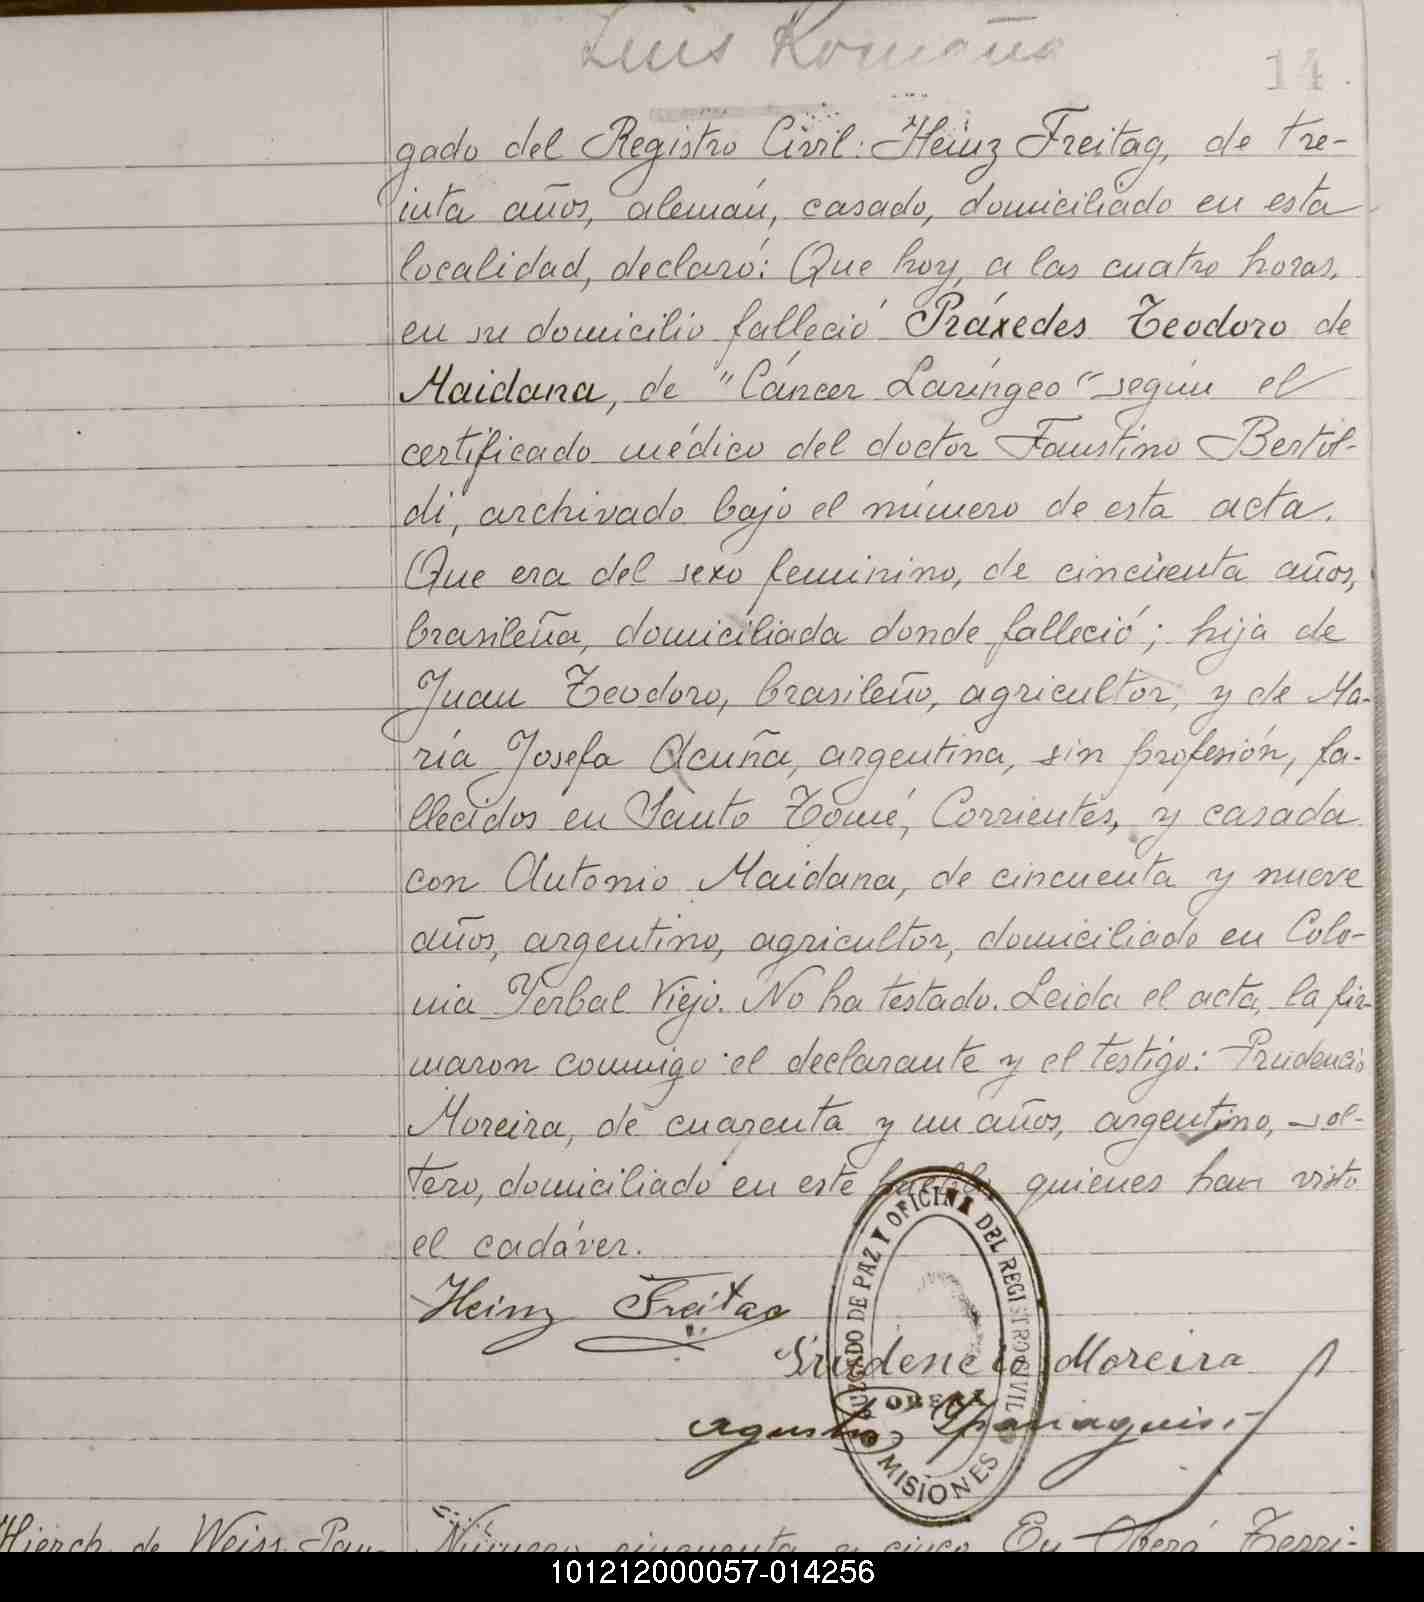 Luis Romaña
14.
gado del Registro Civil: Heinz Freitag, de tre-
inta años, alemán, casado, domiciliado en esta
localidad, declaró: Que hoy, a las cuatro horas,
en su domicilio falleció Práxedes Teodoro de
Maidana, de "Cáncer Laríngeo" según el
certificado médico del doctor Faustino Bertol-
di, archivado bajo el número de esta acta.
Que era del sexo feminino, de cincuenta años,
brasileña, domiciliada donde falleció; hija de
Juan Teodoro, brasileño, agricultor, y de Ma-
ría Josefa Acuña, argentina, sin profesión, fa-
llecidos en Santo Tomé, Corrientes, y casada
con Antonio Maidana, de cincuenta y nueve
años, argentino, agricultor, domiciliado en Colo-
nia Yerbal Viejo. No ha testado. Leida el acta, la fir-
maron conmigo el declarante y el testigo: Prudencio
Moreira, de cuarenta y un años, argentino, sol-
tero, domiciliado en este pueblo quienes han visto
el cadáver.
Heinz Freitag
Prudencio Moreira
JUZGADO DE PAZ Y OFICINA DEL REGISTRO CIVIL
OBERA
MISIONES
Hierch de Weiss, Pau-
Número cincuenta y cinco En Oberá Terri-
101212000057-014256